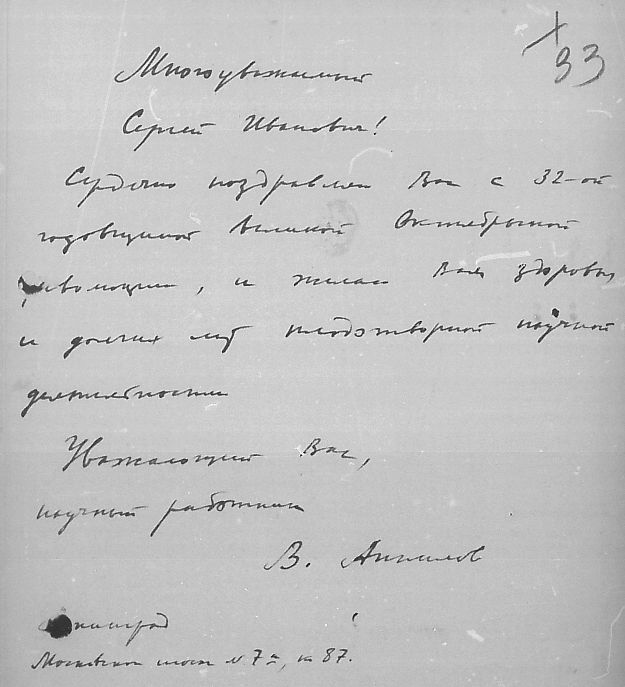 33
Многоуважаемый
Сергей Иванович!
Сердечно поздравляю Вас с 32-ой
годовщиной Великой Октябрьской
революции, и желаю Вам здоровья
и долгих лет плодотворной научной
деятельности
Уважающий Вас,
научный работник
В.
Ленинград
Московское шоссе № 7а, к 87.